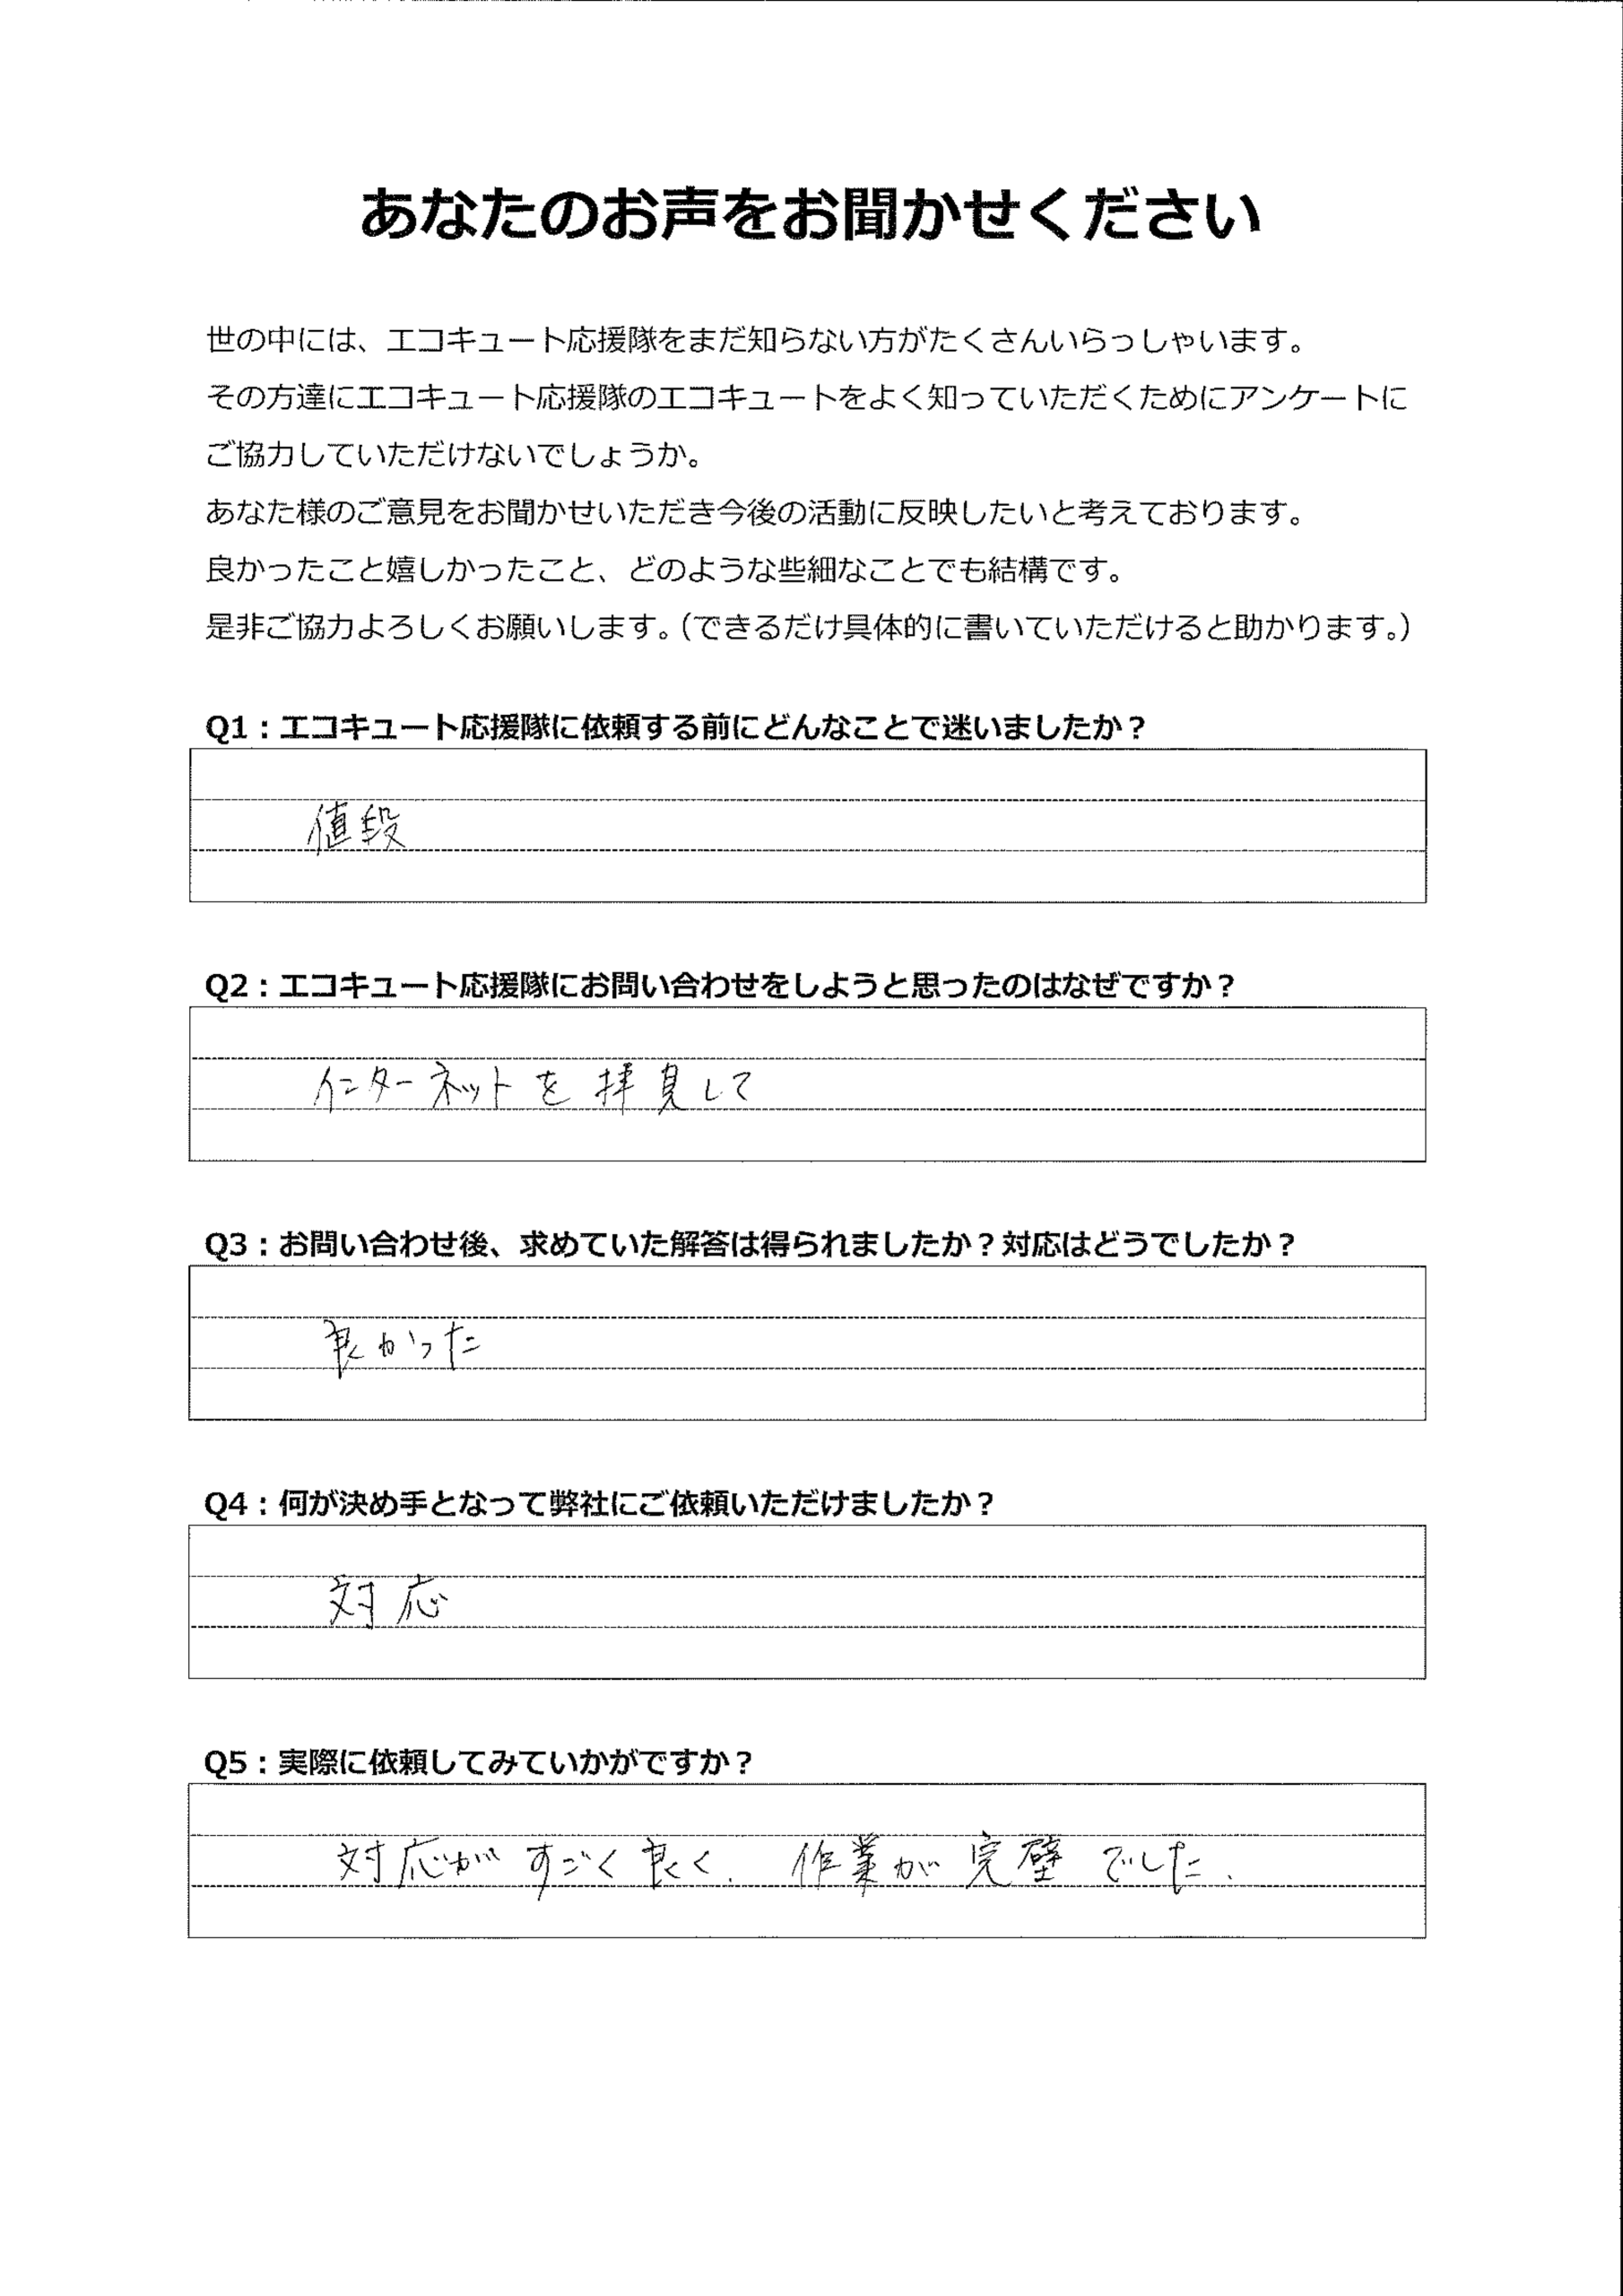 あなたのお声をお聞かせください
世の中には、エコキュート応援隊をまだ知らない方がたくさんいらっしゃいます。
その方達にエコキュート応援隊のエコキュートをよく知っていただくためにアンケートに
ご協力していただけないでしょうか。
あなた様のご意見をお聞かせいただき今後の活動に反映したいと考えております。
良かったこと嬉しかったこと、どのような些細なことでも結構です。
是非ご協力よろしくお願いします。（できるだけ具体的に書いていただけると助かります。）
Q1：エコキュート応援隊に依頼する前にどんなことで迷いましたか？
値段
Q2：エコキュート応援隊にお問い合わせをしようと思ったのはなぜですか？
インターネットを拝見して
Q3：お問い合わせ後、求めていた解答は得られましたか？対応はどうでしたか？
良かった
Q4：何が決め手となって弊社にご依頼いただけましたか？
対応
Q5：実際に依頼してみていかがですか？
対応がすごく良く、作業が完璧でした。